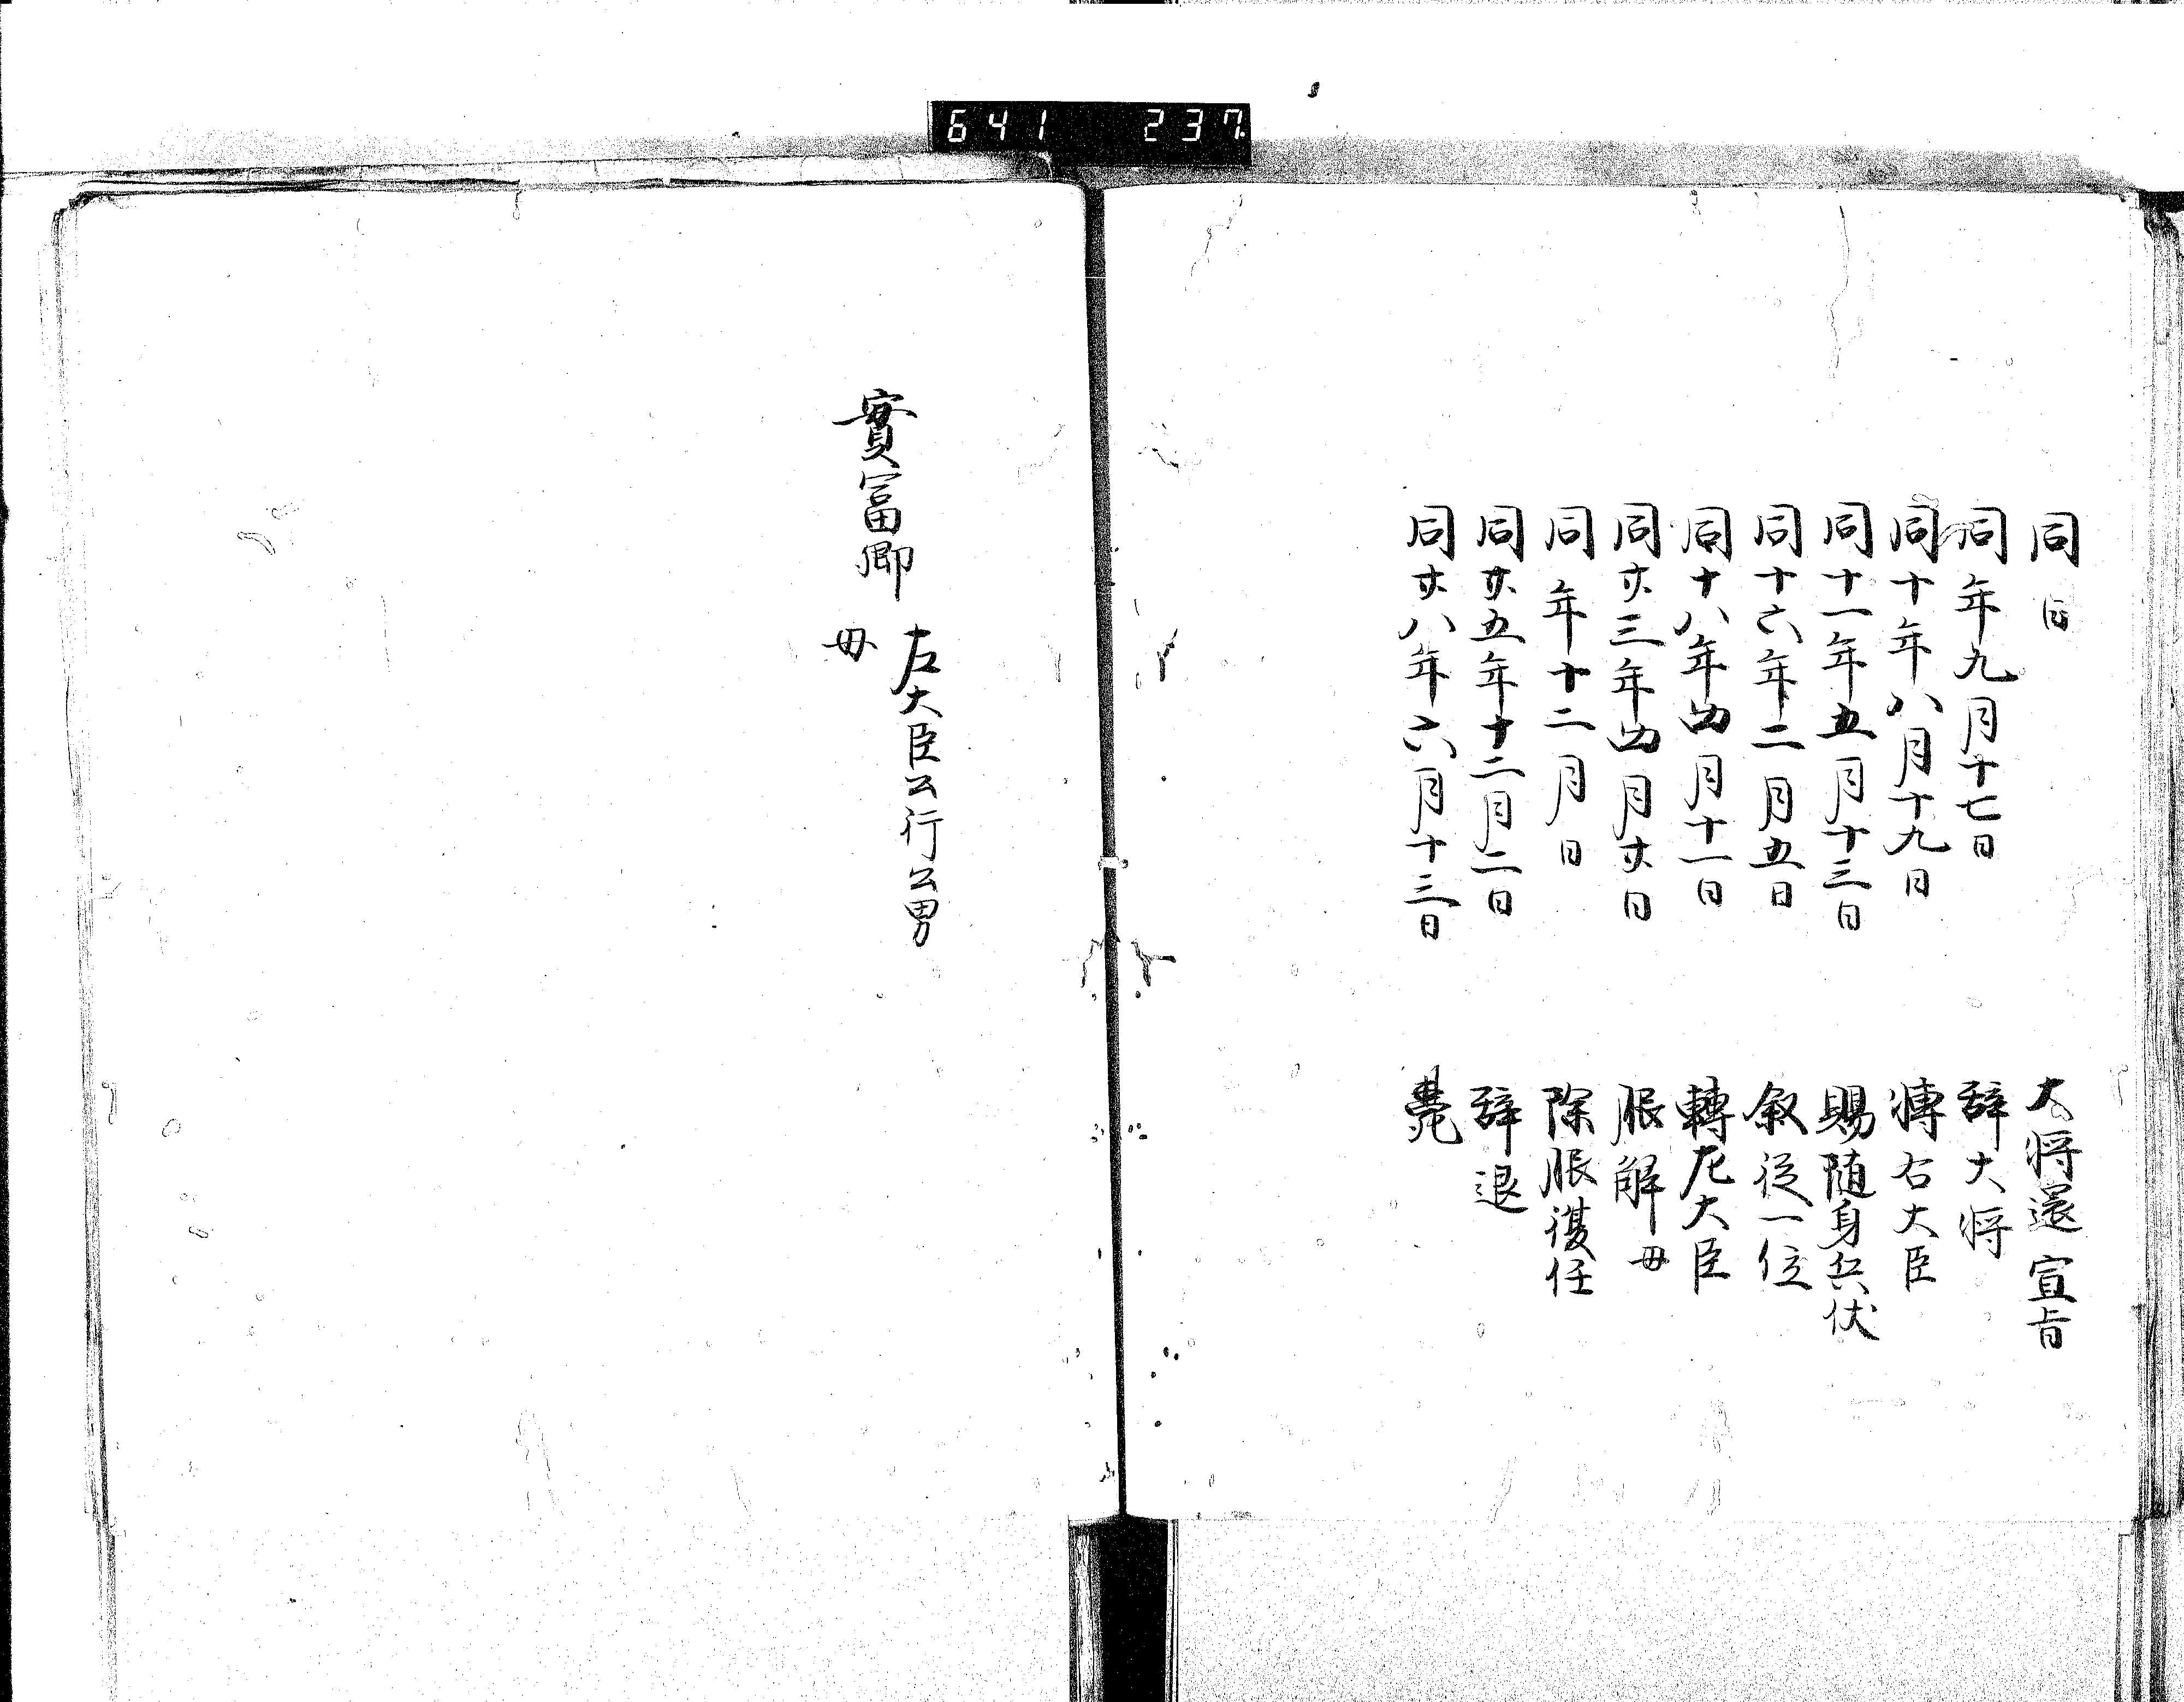 641 237
同日 大将還宣旨
同年九月十七日 辞大将
同十年八月十九日 轉右大臣
同十一年五月十三日 賜随身兵仗
同十六年二月五日 叙従一位
同十八年四月十一日 轉左大臣
同廿三年四月廿日 服解母
同年十二月日 除服復任
同廿五年十二月二日 辞退
同廿八年六月十三日 薨
實冨卿 左大臣公行公男
母